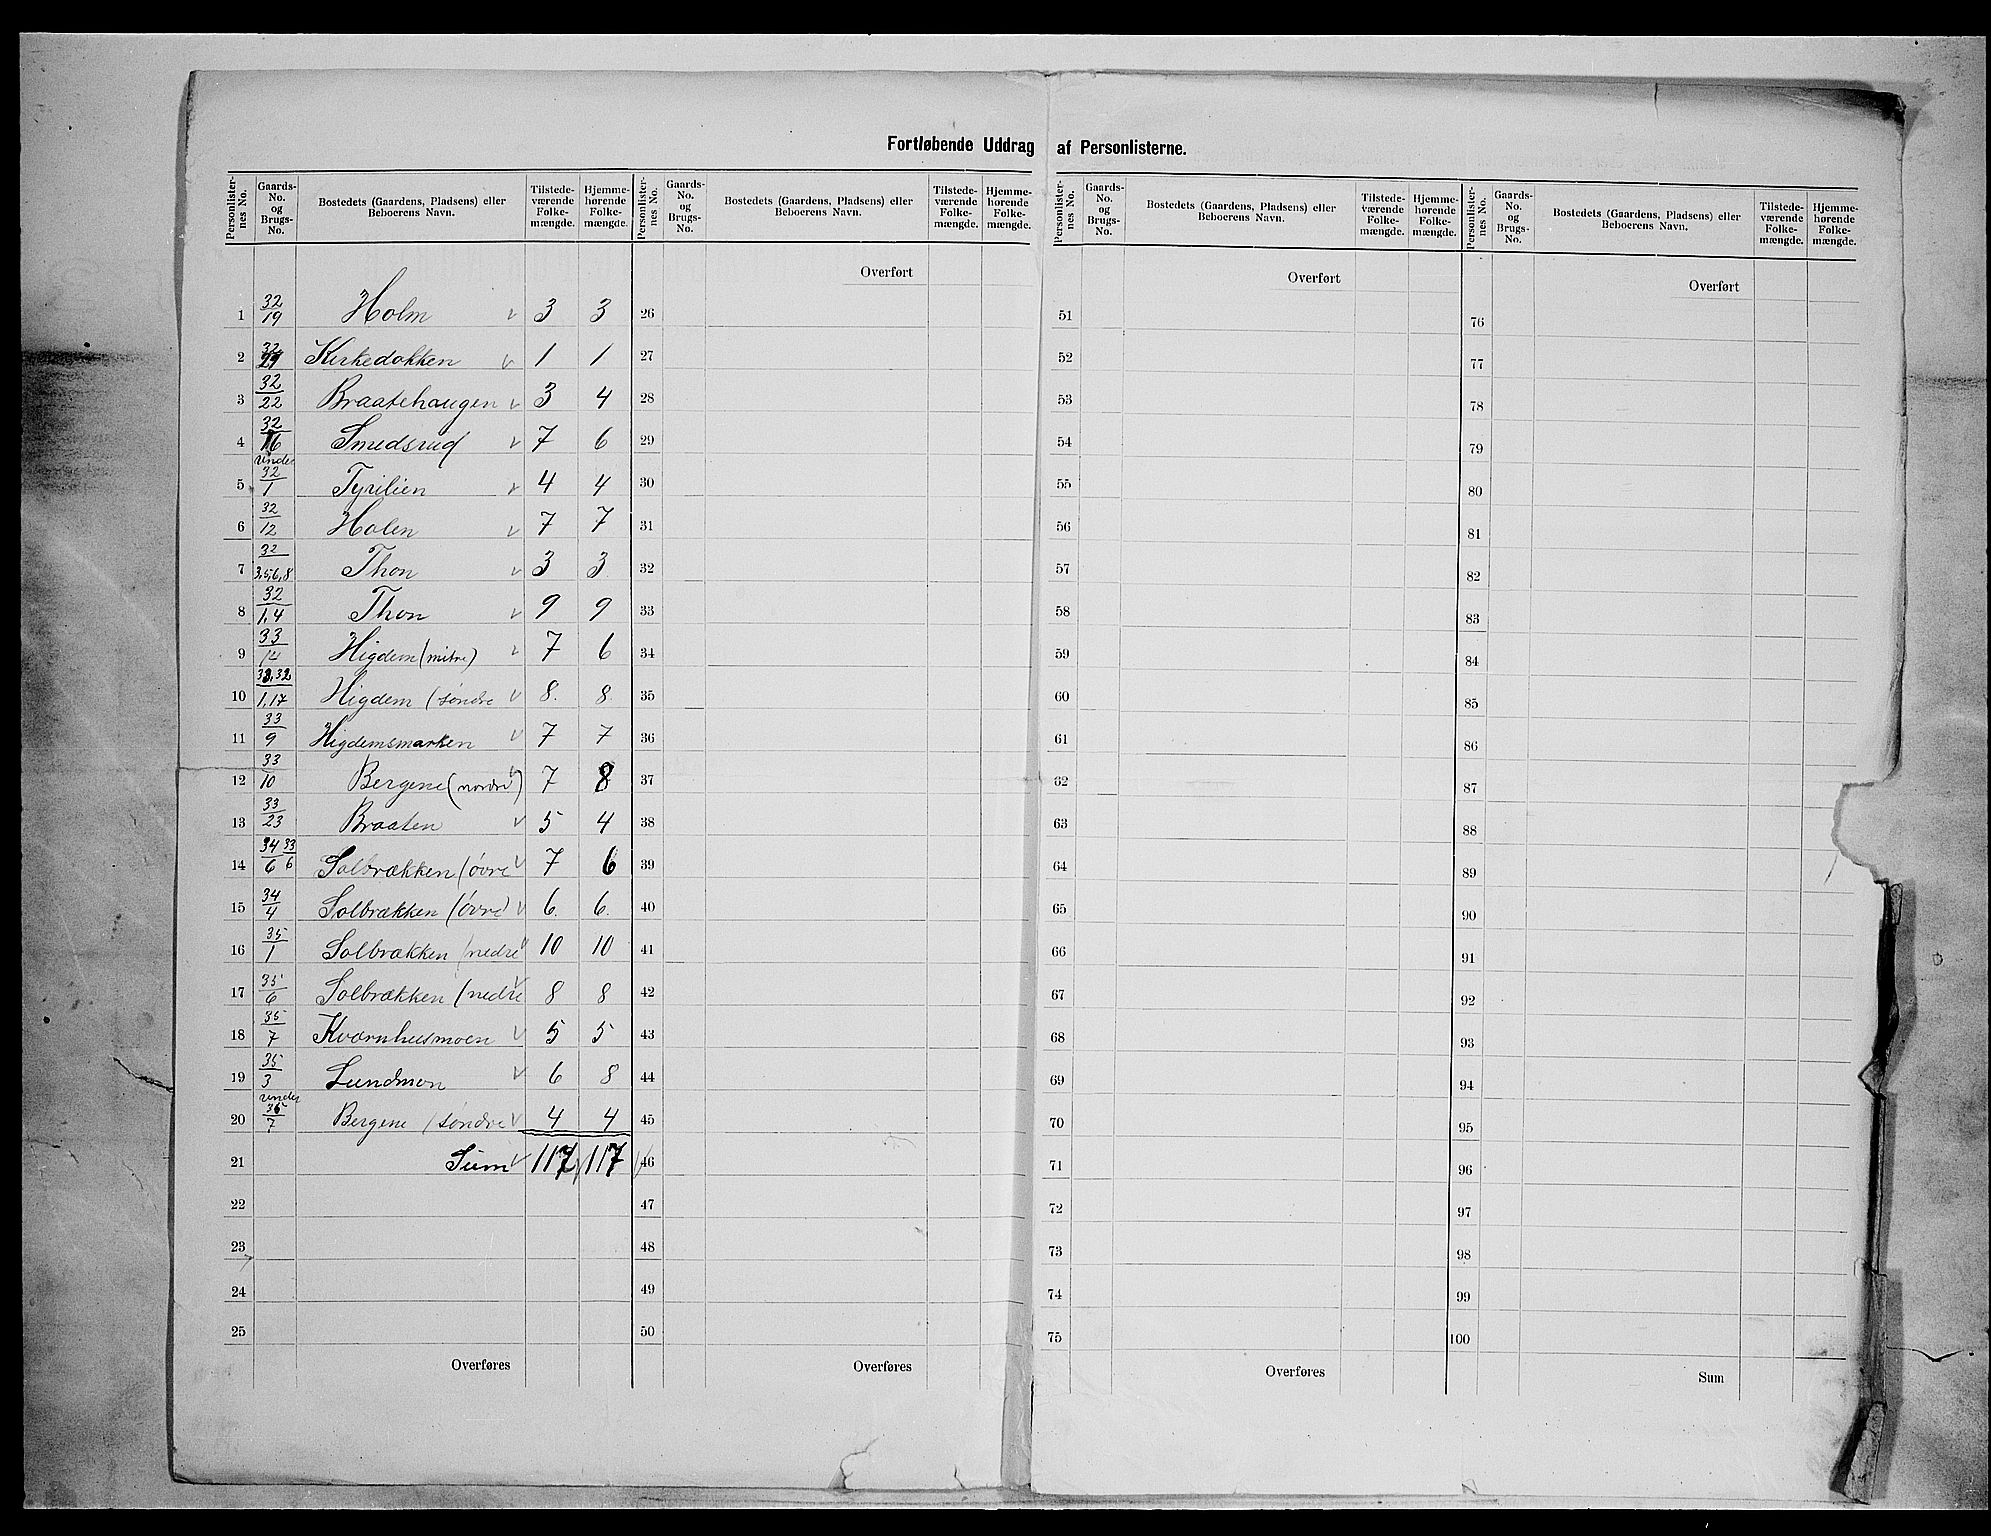 Fortløbende Uddrag af Personlisterne.
Personlister-nes No. | Gaards-No. og Brugs-No. | Bostedets (Gaardens, Pladsens) eller Beboerens Navn. | Tilstede-værende Folke-mængde. | Hjemme-hørende Folke-mængde.
1 32/19 Holm v 3 3
2 32/29 Kirkedokken v 1 1
3 32/22 Braatehaugen v 3 4
4 32/16 Smedsrud v 7 6
5 under 32/1 Tyrilien v 4 4
6 32/12 Holen v 7 7
7 32/3,5,6,8 Thon v 3 3
8 32/1,4 Thon v 9 9
9 33/14 Higdem (mitre) v 7 6
10 33,32/1,17 Higdem (søndre v 8. 8.
11 33/9 Higdemsmarken v 7 7
12 33/10 Bergene (nordre) v 7 8
13 33/23 Braaten v 5 4
14 34/6 33/6 Solbrækken (øvre v 7 6
15 34/4 Solbrækken (øvre) v 6. 6.
16 35/1 Solbrækken (nedre v 10 10
17 35/6 Solbrækken (nedre v 8 8
18 35/7 Kværnhusmoen v 5 5
19 35/3 Lundmon v 6 8
20 under 35/7 Bergene (søndre v 4 4
21 Sum v 117 117
22
23
24
25
Overføres
Personlister-nes No. | Gaards-No. og Brugs-No. | Bostedets (Gaardens, Pladsens) eller Beboerens Navn. | Tilstede-værende Folke-mængde. | Hjemme-hørende Folke-mængde.
Overført
26
27
28
29
30
31
32
33
34
35
36
37
38
39
40
41
42
43
44
45
46
47
48
49
50
Overføres
Personlister-nes No. | Gaards-No. og Brugs-No. | Bostedets (Gaardens, Pladsens) eller Beboerens Navn. | Tilstede-værende Folke-mængde. | Hjemme-hørende Folke-mængde.
Overført
51
52
53
54
55
56
57
58
59
60
61
62
63
64
65
66
67
68
69
70
71
72
73
74
75
Overføres
Personlister-nes No. | Gaards-No. og Brugs-No. | Bostedets (Gaardens, Pladsens) eller Beboerens Navn. | Tilstede-værende Folke-mængde. | Hjemme-hørende Folke-mængde.
Overført
76
77
78
79
80
81
82
83
84
85
86
87
88
89
90
91
92
93
94
95
96
97
98
99
100
Sum